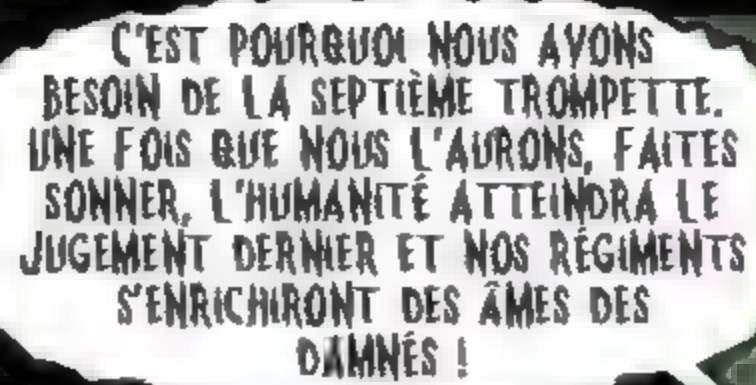 C'EST POURQUOI NOUS AVONS
BESOIN DE LA SEPTIÈME TROMPETTE.
UNE FOIS QUE NOUS L'AURONS, FAITES
SONNER, L'HUMANITÉ ATTEINDRA LE
JUGEMENT DERNIER ET NOS RÉGIMENTS
S'ENRICHIRONT DES ÂMES DES
DAMNÉS !